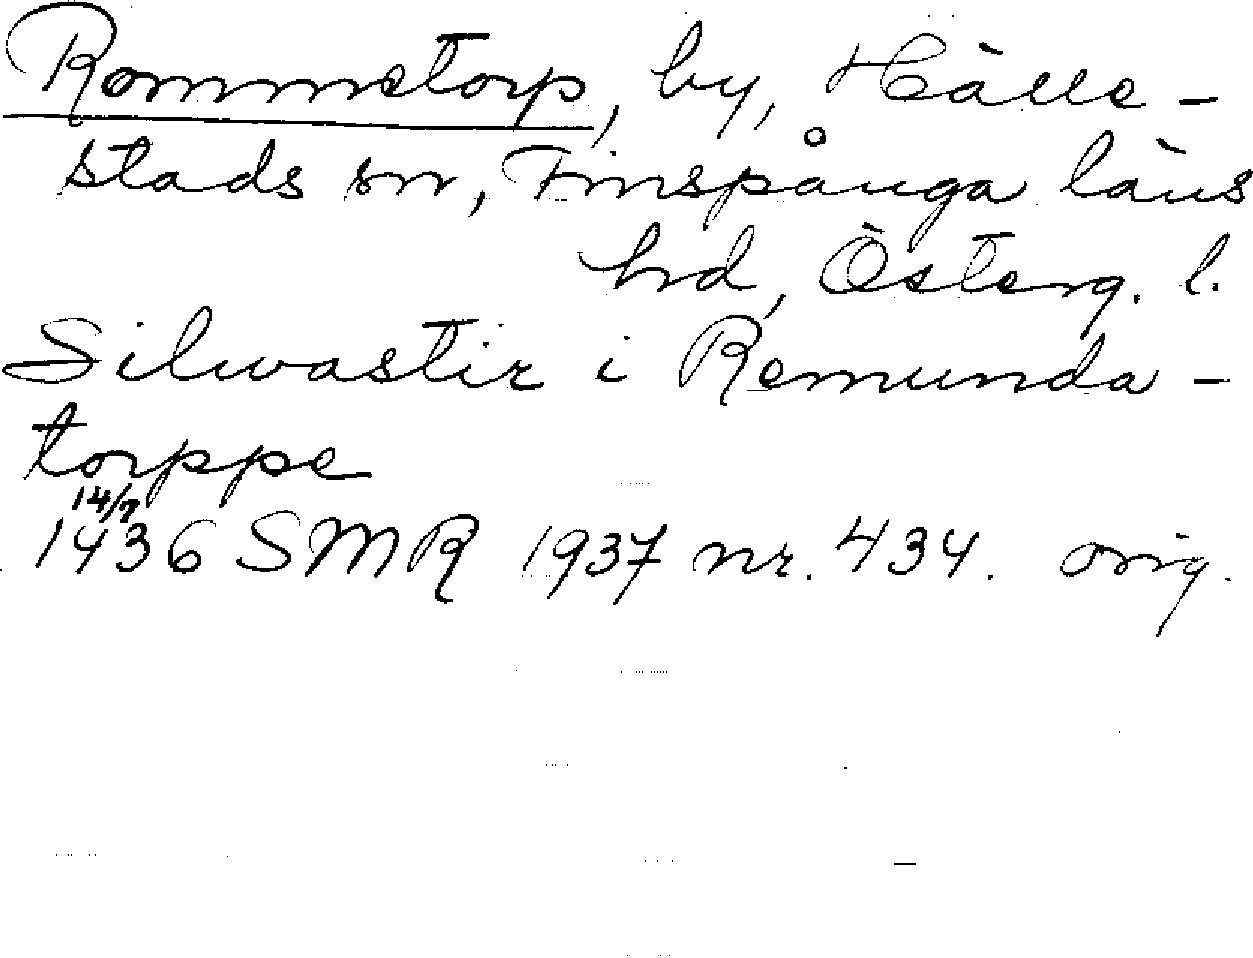 Rommetorp, by, Hälle-
stads sn, Finspånga läns
hd, Österg. l.
Silwastir i Remunda-
torppe
14/7
1436 SMR 1937 nr. 434. orig.